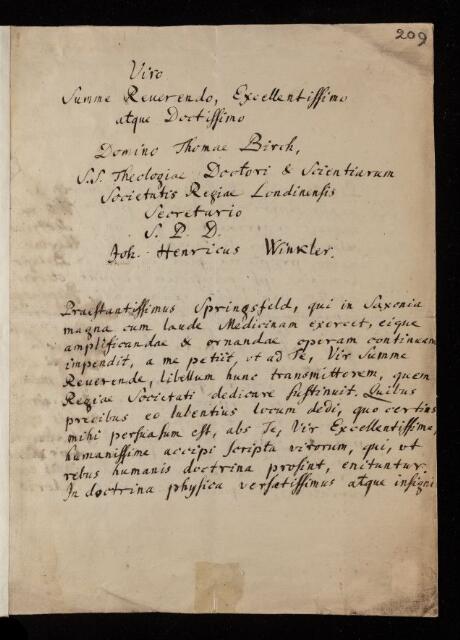 209
Viro
Summe Reverendo, Excellentissimo
atque Doctissimo
Domino Thomae Birch,
S.S. Theologiae Doctori & Scientiarum
Societatis Regiae Londinensis
Secretario
S. P. D.
Joh. Henricus Winkler.
Praestantissimus Springsfeld, qui in Saxonia
magna cum laude Medicinam exercet, eique
amplificandae & ornandae operam continuam
impendit, a me petiit, ut ad Te, Vir Summe
Reverende, libellum hunc transmitterem, quem
Regiae Societati dedicare sustinuit. Quibus
precibus eo lubentius locum dedi, quo certius
mihi persuasum est, abs Te, Vir Excellentissime,
humanissime accipi scripta virorum, qui, ut
rebus humanis doctrina prosint, enituntur.
In doctrina physica versatissimus atque insigni